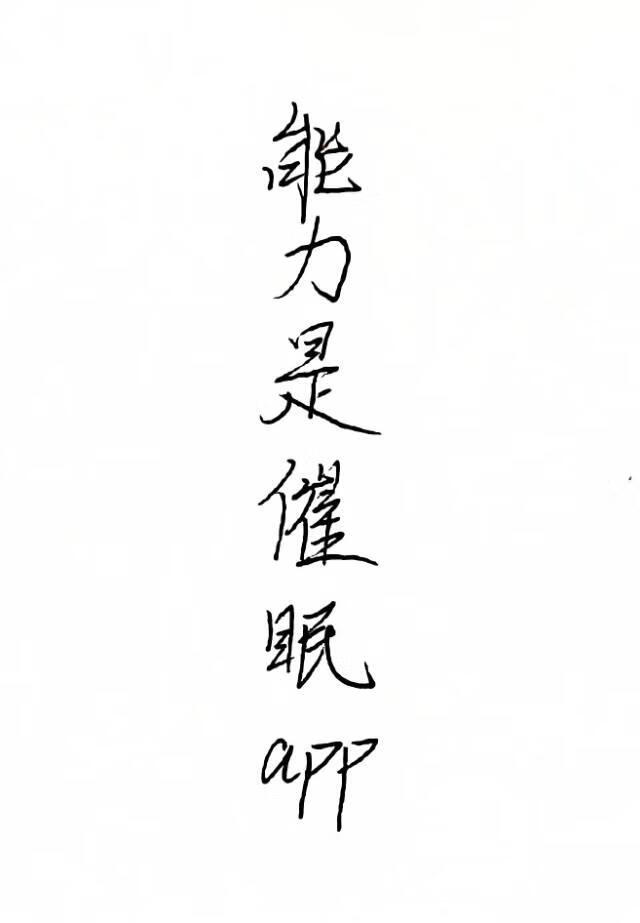 能力是催眠app